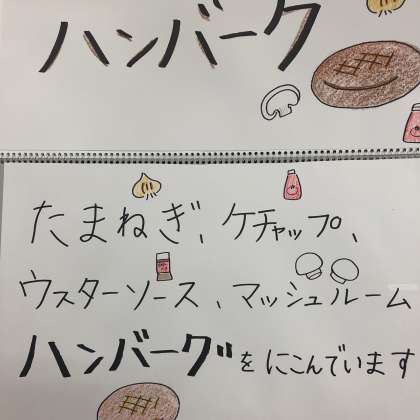 ハンバーク
たまねぎ、ケチャップ、
ウスターソース、マッシュルーム
ハンバーグをにこんでいます